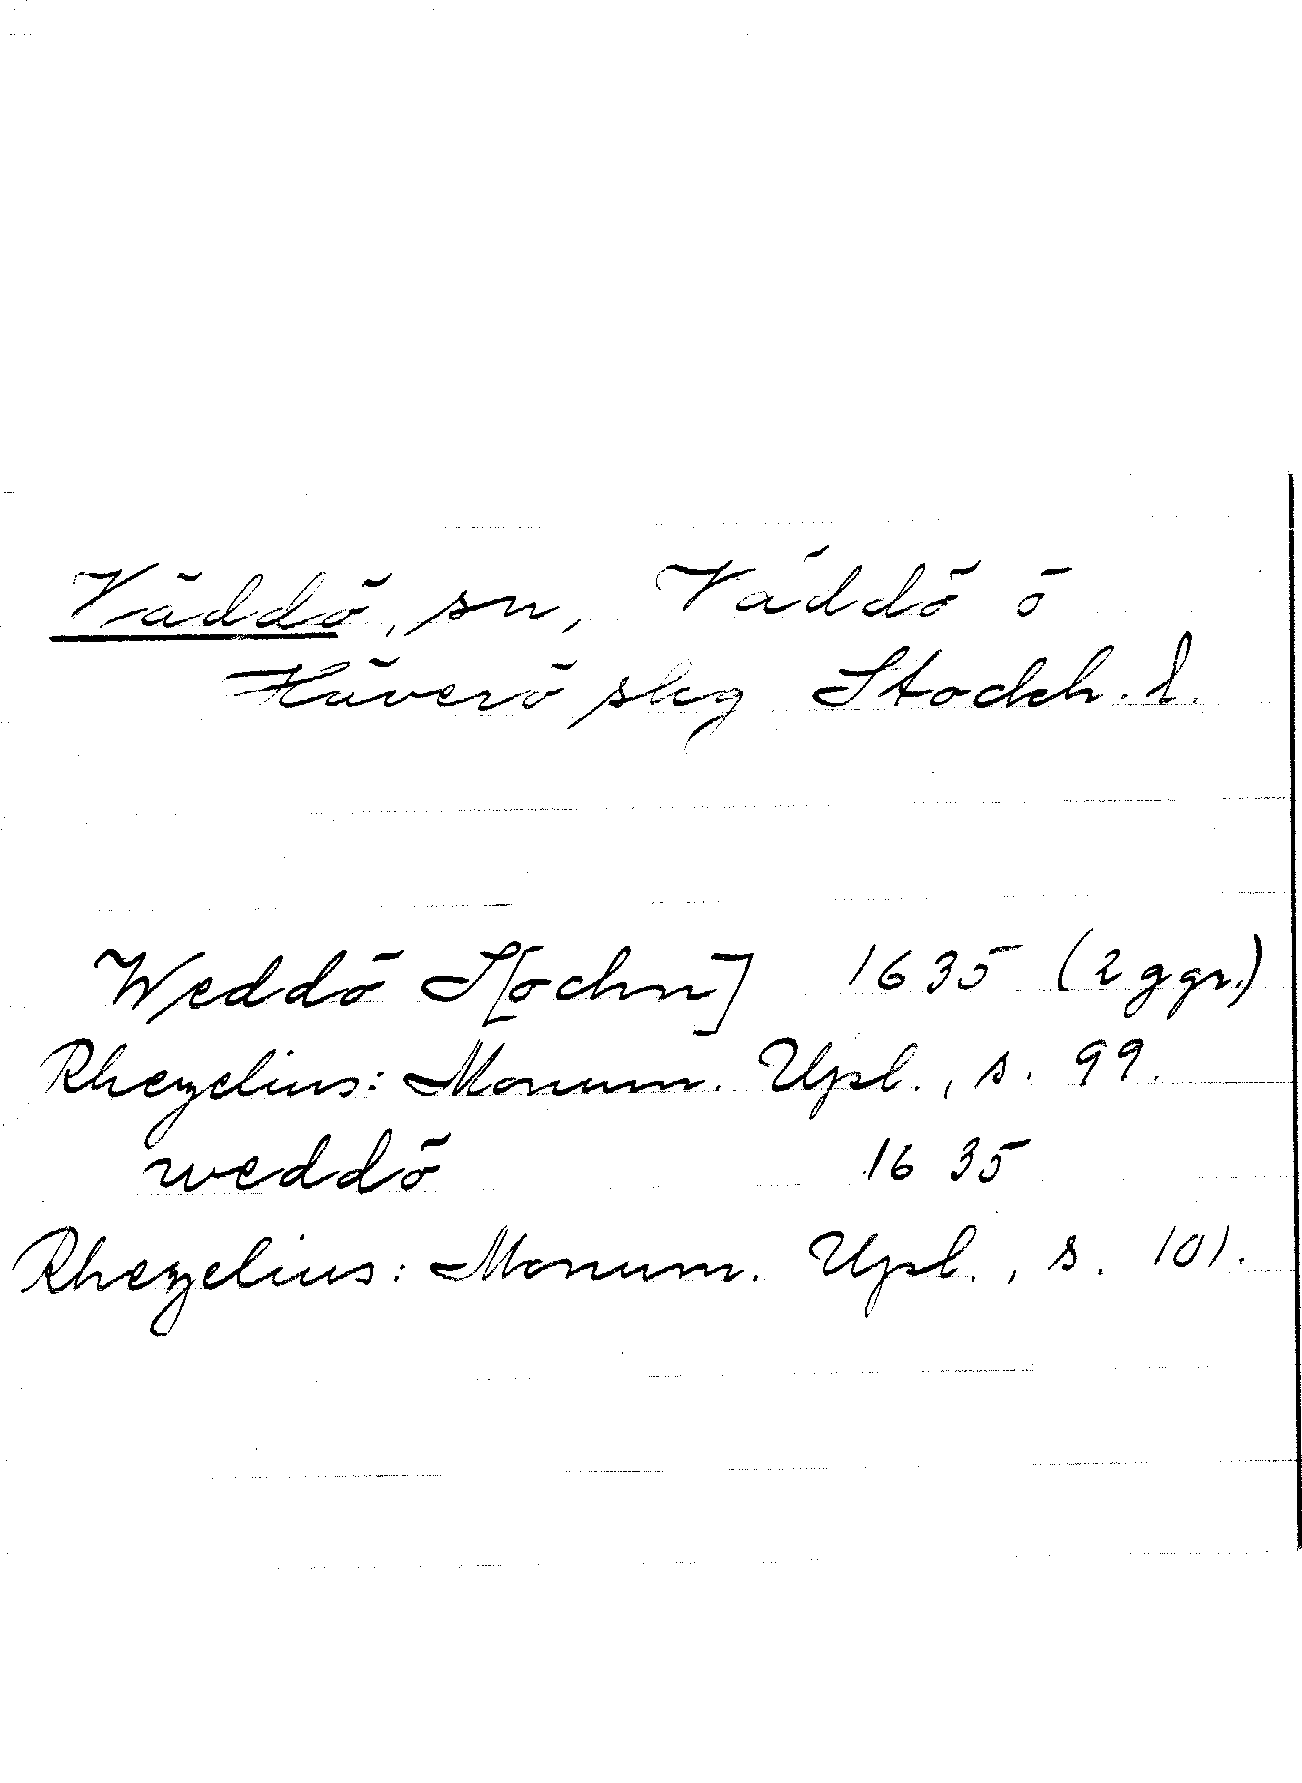 Väddö, sn, Väddö o
Häverö skg Stockh. l.
Weddö S[ochn] 1635 (2 ggr.)
Rhezelius: Monum. Upl., s. 99.
weddö 1635
Rhezelius: Monum. Upl., s. 101.